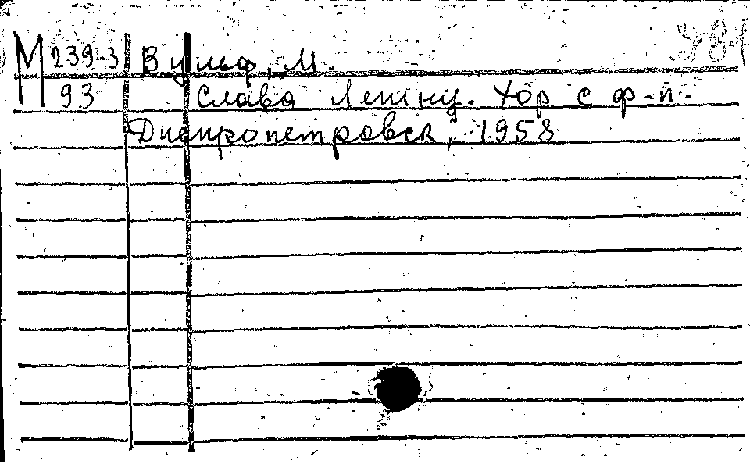 М 239-3 Вульф, М.
93 Слава Леніну. Хор с ф-п.
Днепропетровск, 1958